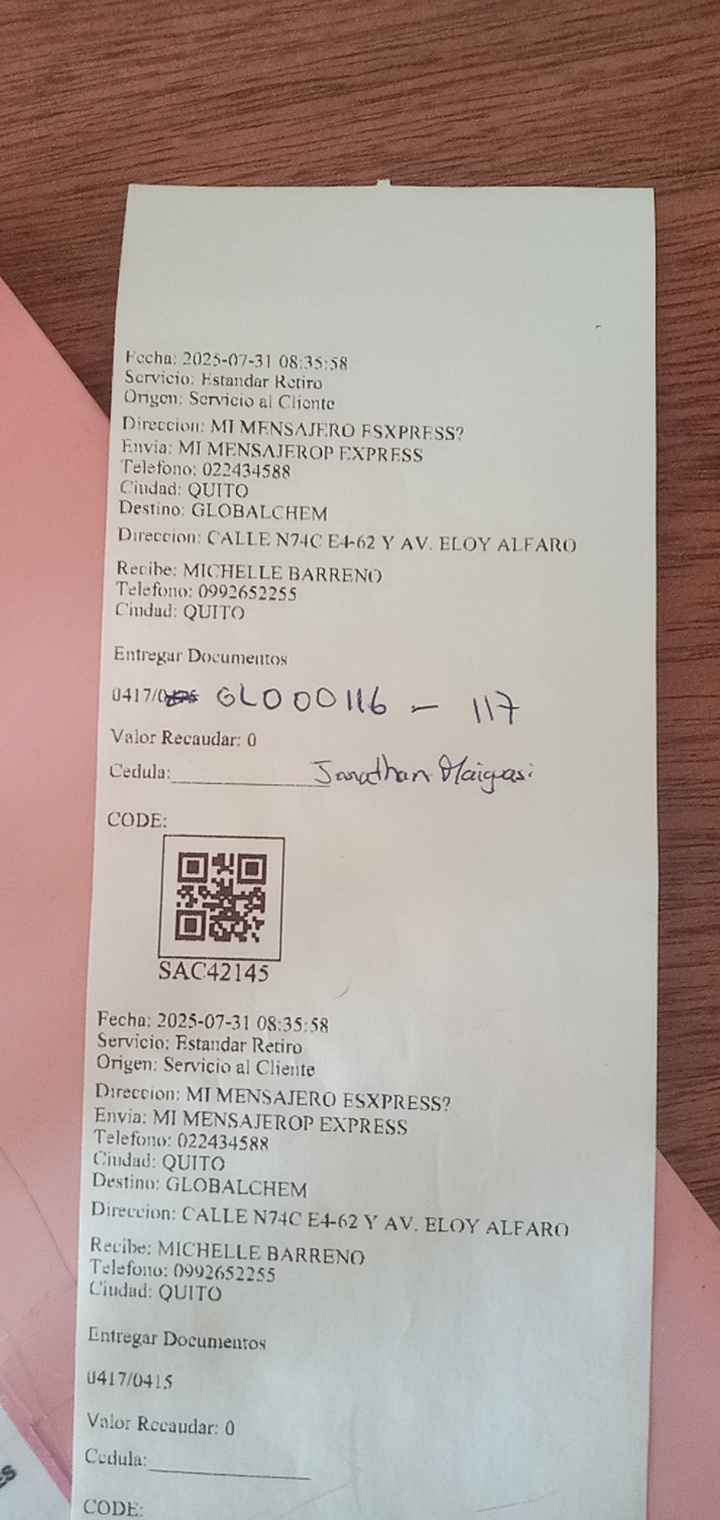 Fecha: 2025-07-31 08:35:58
Servicio: Estandar Retiro
Origen: Servicio al Cliente
Direccion: MI MENSAJERO ESXPRESS?
Envia: MI MENSAJEROP EXPRESS
Telefono: 022434588
Ciudad: QUITO
Destino: GLOBALCHEM
Direccion: CALLE N74C E4-62 Y AV. ELOY ALFARO
Recibe: MICHELLE BARRENO
Telefono: 0992652255
Ciudad: QUITO
Entregar Documentos
0417/0 GL000116 - 117
Valor Recaudar: 0
Cedula: Jonathan
CODE:
SAC42145
Fecha: 2025-07-31 08:35:58
Servicio: Estandar Retiro
Origen: Servicio al Cliente
Direccion: MI MENSAJERO ESXPRESS?
Envia: MI MENSAJEROP EXPRESS
Telefono: 022434588
Ciudad: QUITO
Destino: GLOBALCHEM
Direccion: CALLE N74C E4-62 Y AV. ELOY ALFARO
Recibe: MICHELLE BARRENO
Telefono: 0992652255
Ciudad: QUITO
Entregar Documentos
0417/0415
Valor Recaudar: 0
Cedula:
CODE: